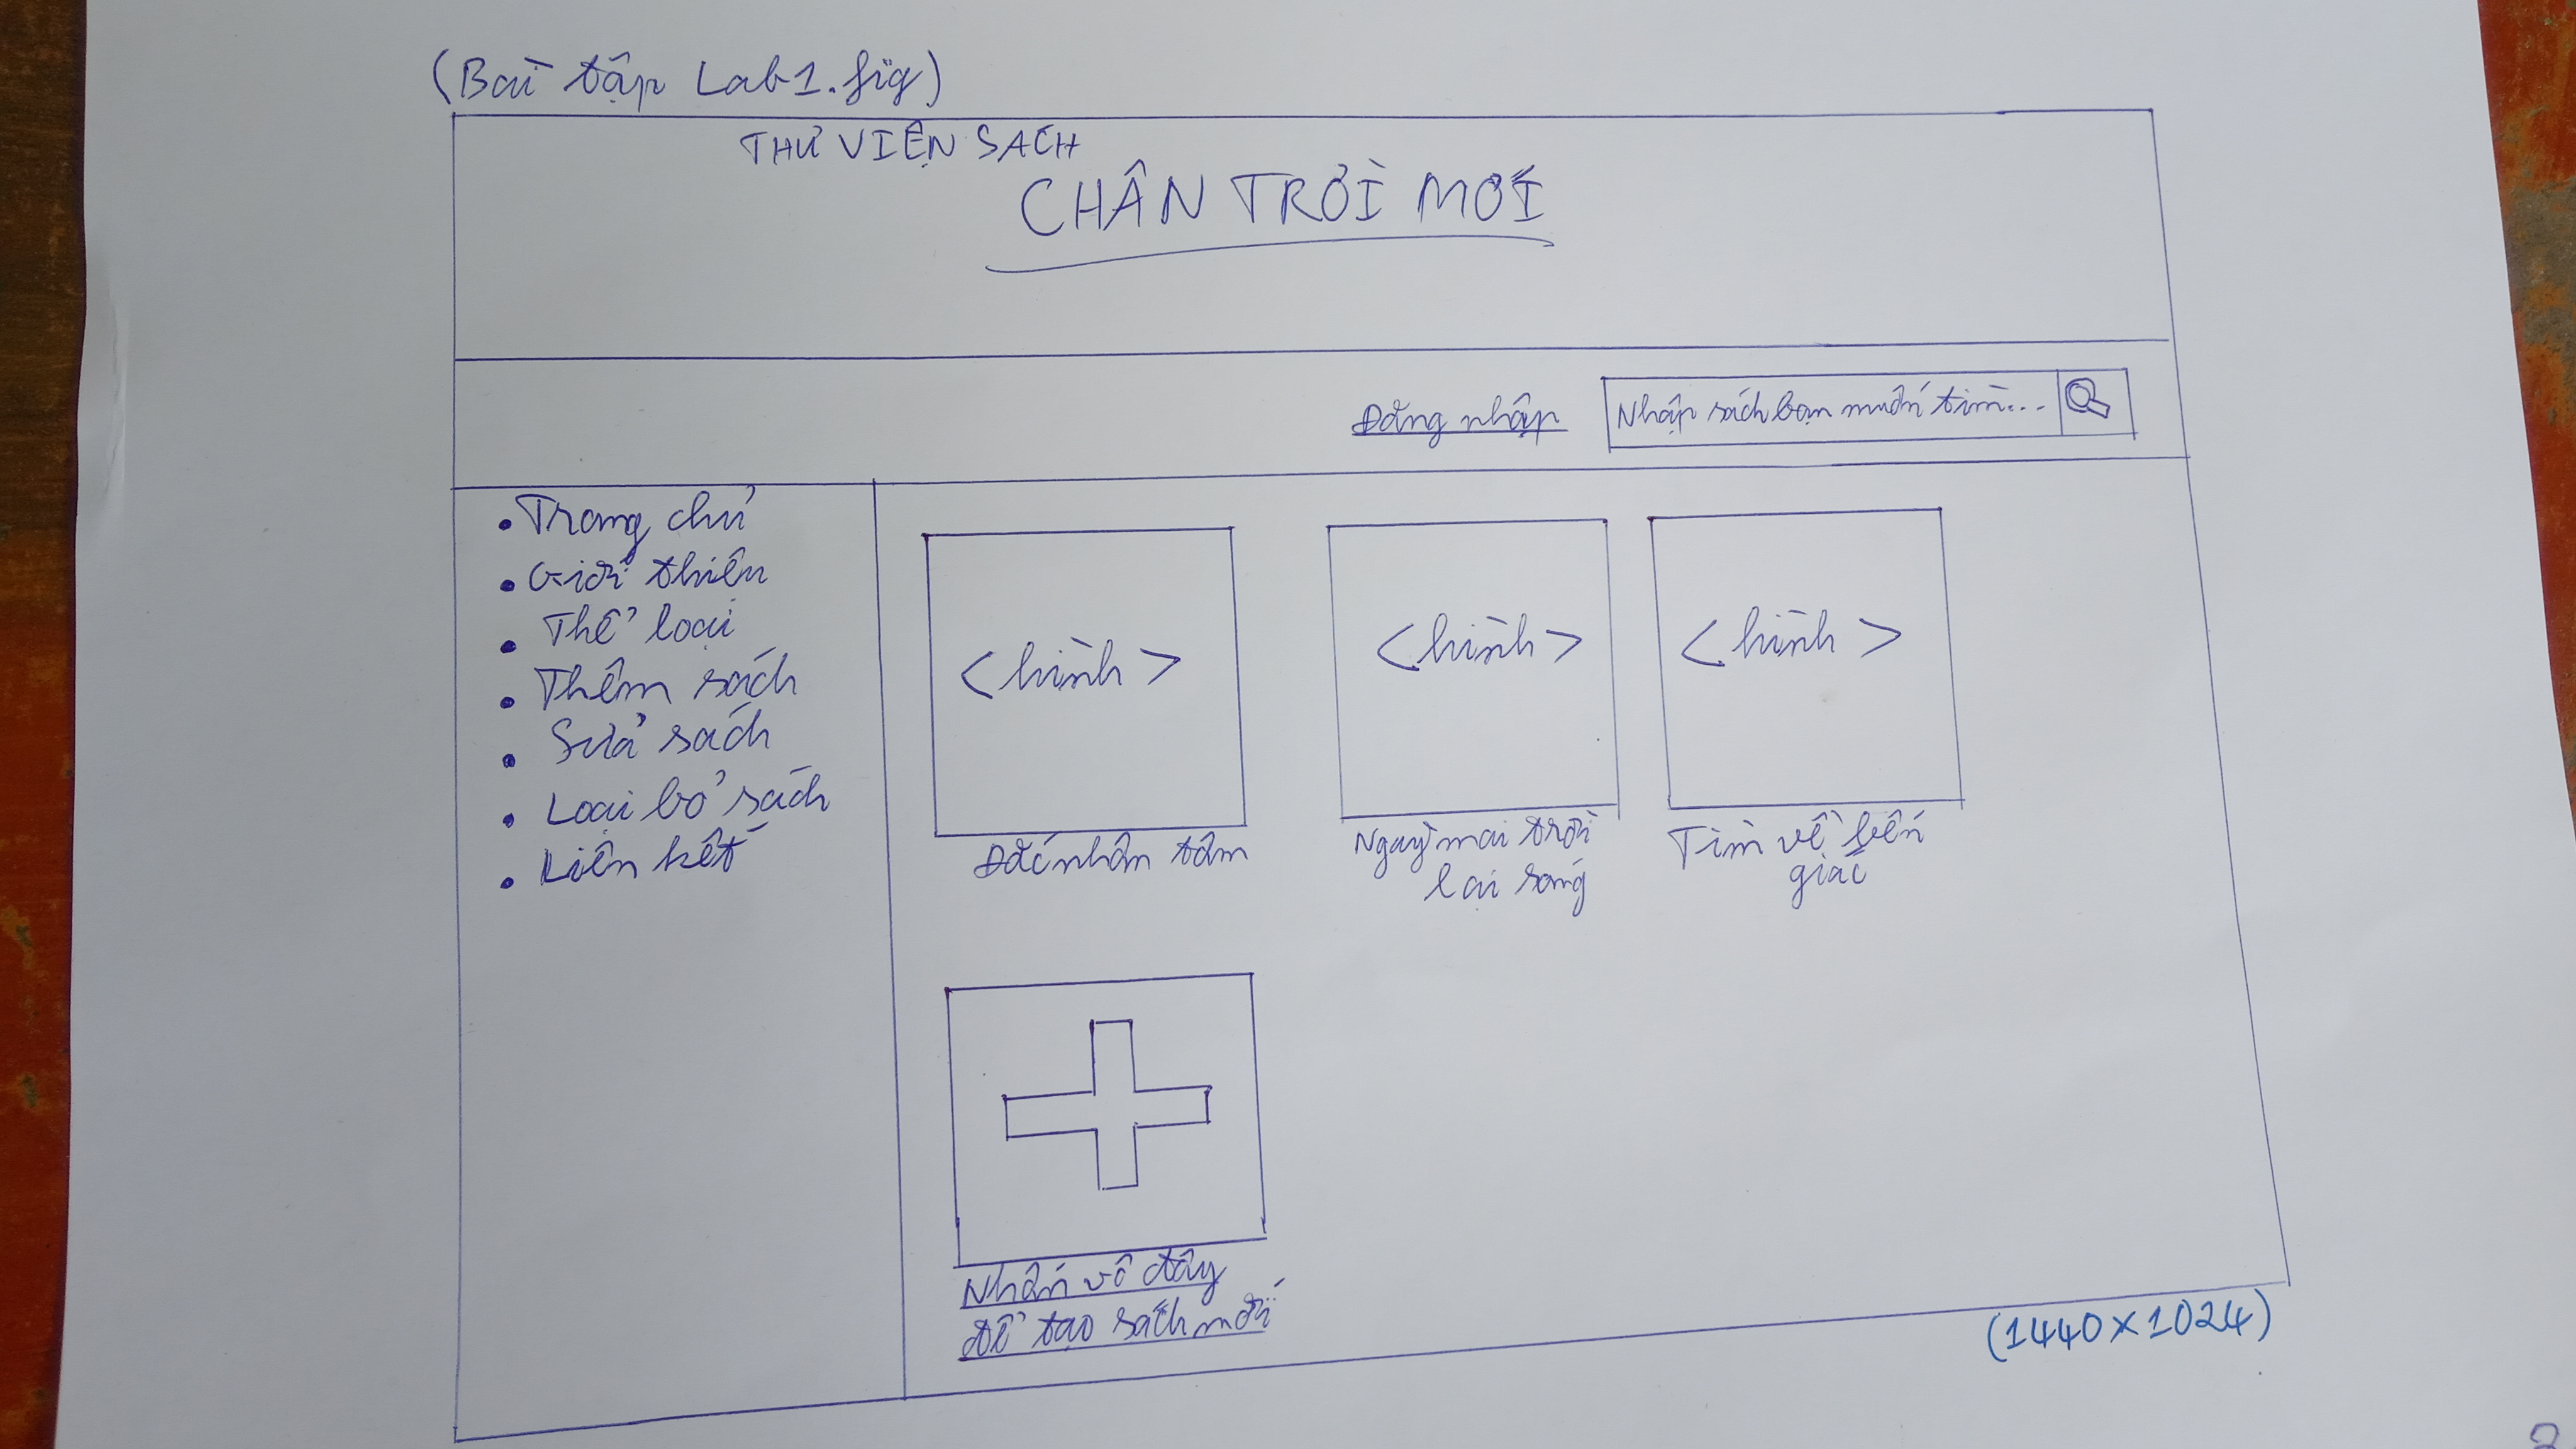 (Bài tập Lab1.fig)
THƯ VIỆN SÁCH
CHÂN TRỜI MỚI
Đăng nhập
Nhập sách bạn muốn tìm...
• Trang chủ
• Giới thiệu
• Thể loại
• Thêm sách
• Sửa sách
• Loại bỏ sách
• Liên kết
<hình>
<hình>
<hình>
Đắc nhân tâm
Ngày mai trời
lại sáng
Tìm về bến
giác
Nhấn vô đây
để tạo sách mới
(1440x1024)